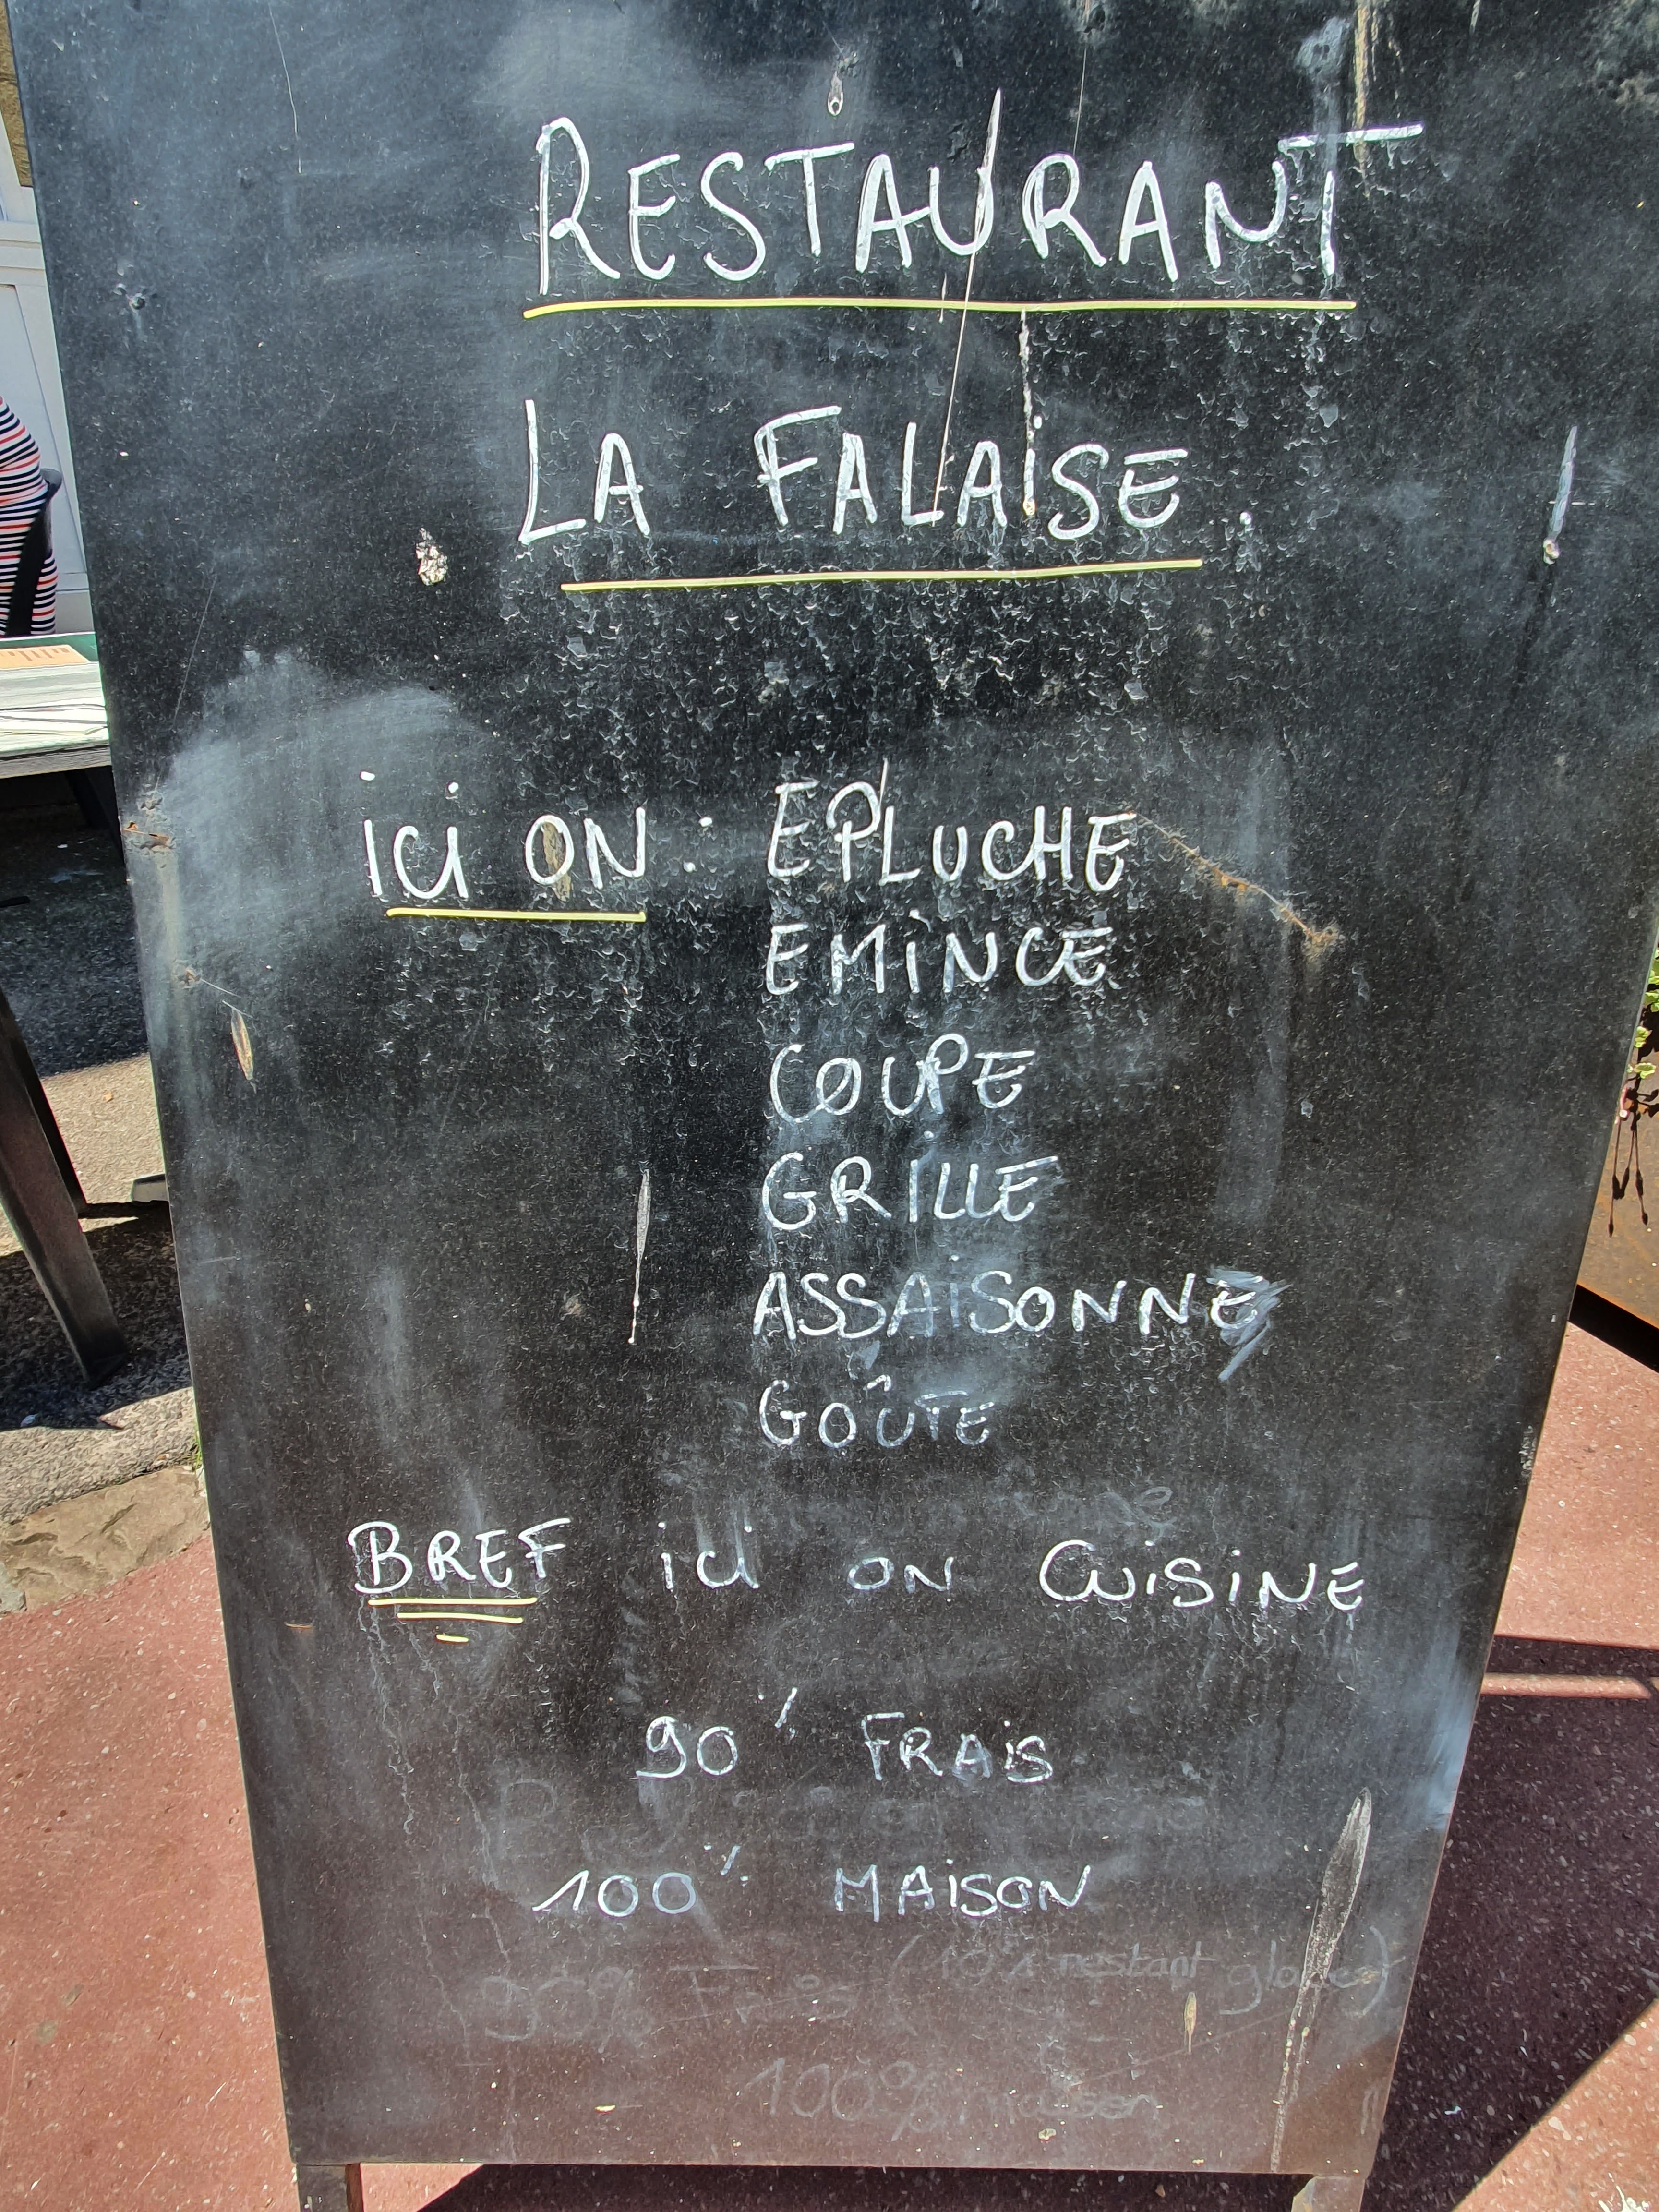 RESTAURANT
LA FALAISE.
ici ON : EPLUCHE
EMiNCE
COUPE
GRiLLE
ASSAiSONNE
GOÛTE
BREF ici ON CUiSiNE
90 % FRAiS
100 % MAiSON
(10% restant glaces)
100% maison